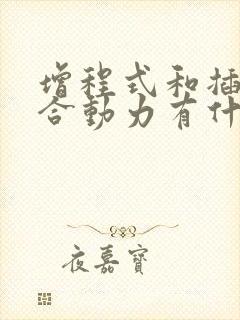 增程式和插
合动力有什
夜嘉宝